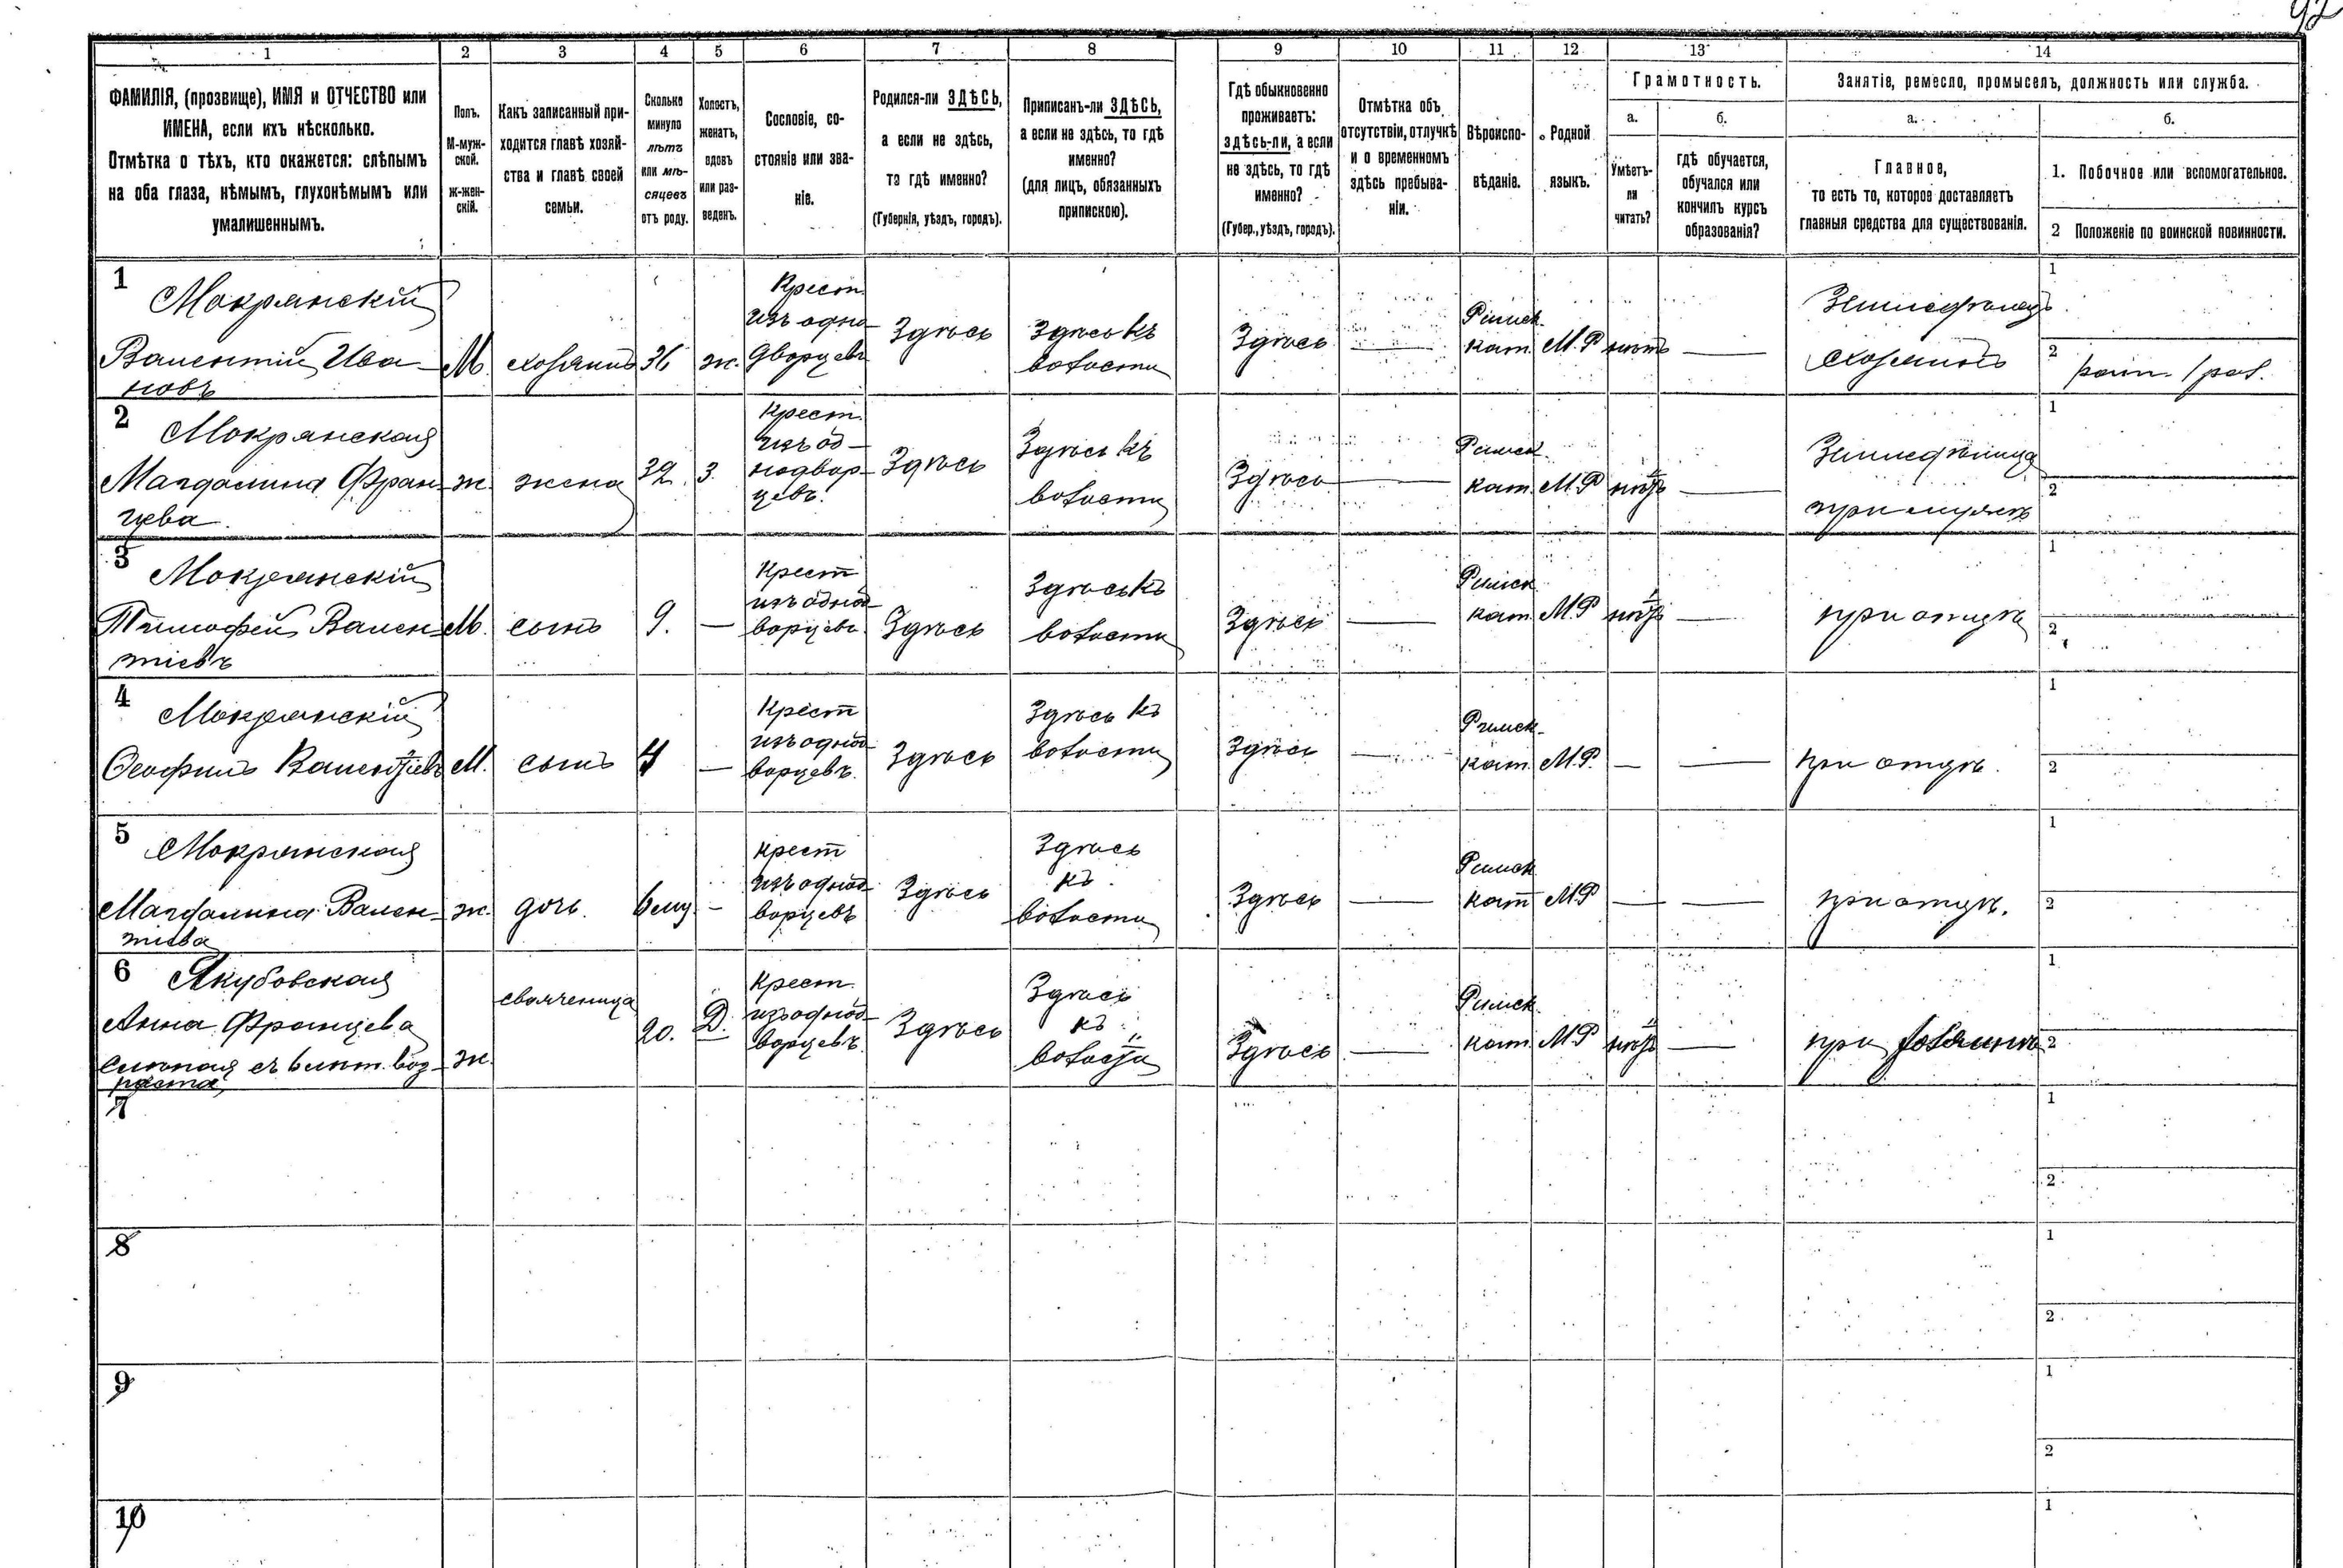 92
1 2 3 4 5 6 7 8 9 10 11 12 13 14
ФАМИЛІЯ, (прозвище), ИМЯ и ОТЧЕСТВО или
ИМЕНА, если ихъ нѣсколько.
Отмѣтка о тѣхъ, кто окажется: слѣпымъ
на оба глаза, нѣмымъ, глухонѣмымъ или
умалишеннымъ.
Полъ.
М-муж-
ской.
Ж-жен-
скій.
Какъ записанный при-
ходится главѣ хозяй-
ства и главѣ своей
семьи.
Сколько
минуло
лѣтъ
или мѣ-
сяцевъ
отъ роду.
Холостъ,
женатъ,
вдовъ
или раз-
веденъ.
Сословіе, со-
стояніе или зва-
ніе.
Родился-ли ЗДѢСЬ,
а если не здѣсь,
то гдѣ именно?
(Губернія, уѣздъ, городъ).
Приписанъ-ли ЗДѢСЬ,
а если не здѣсь, то гдѣ
именно?
(для лицъ, обязанныхъ
припискою).
Гдѣ обыкновенно
проживаетъ:
ЗДѢСЬ-ЛИ, а если
не здѣсь, то гдѣ
именно?
(Губер., уѣздъ, городъ).
Отмѣтка объ
отсутствіи, отлучкѣ
и о временномъ
здѣсь пребыва-
ніи.
Вѣроиспо-
вѣданіе.
Родной
языкъ.
Грамотность.
а.
Умѣетъ-
ли
читать?
б.
гдѣ обучается,
обучался или
кончилъ курсъ
образованія?
Занятіе, ремесло, промыселъ, должность или служба.
а.
Главное,
то есть то, которое доставляетъ
главныя средства для существованія.
б.
1. Побочное или вспомогательное.
2 Положеніе по воинской повинности.
1
Мокрянскій
Валентій Ива-
новъ
М.
хозяинъ
36
ж.
Крест.
изъ одно-
дворцевъ
Здѣсь
Здѣсь къ
волости
Здѣсь
—
Римск.
кат.
М.Р
нѣтъ
—
Земледѣлецъ
хозяинъ
1
2
ратн. 1 раз.
2
Мокрянская
Магдалина Фран-
цева
ж.
жена
32.
З.
Крест.
изъ од-
нодвор-
цевъ.
Здѣсь
Здѣсь къ
волости
Здѣсь
—
Римск.
кат.
М.Р
нѣтъ
—
Земледѣлица
при мужѣ
1
2
3
Мокрянскій
Тимофей Вален-
тіевъ
М.
сынъ
9.
—
Крест
изъ однод-
ворцевъ
Здѣсь
Здѣсь къ
волости
Здѣсь
—
Римск.
кат.
М.Р
нѣтъ
—
при отцѣ
1
2
4
Мокрянскій
Ѳеофилъ Валентіевъ
М.
сынъ
4
—
Крест
изъ однод-
ворцевъ.
Здѣсь
Здѣсь къ
волости
Здѣсь
—
Римск.
кат.
М.Р.
—
—
при отцѣ.
1
2
5
Мокрянская
Магдалина Вален-
тіева
ж.
дочь.
6 мц
—
Крест
изъ однод-
ворцевъ
Здѣсь
Здѣсь
къ
волости
Здѣсь
—
Римск
кат
М.Р
—
—
при отцѣ.
1
2
6
Якубовская
Анна Францева
слѣпая съ 6 лѣт. воз-
раста
ж.
своячениця
20.
Д.
Крест.
изъ однод-
ворцевъ
Здѣсь
Здѣсь
къ
волости
Здѣсь
—
Римск.
кат.
М.Р
нѣтъ
—
при хозяинѣ
1
2
7
1
2
8
1
2
9
1
2
10
1